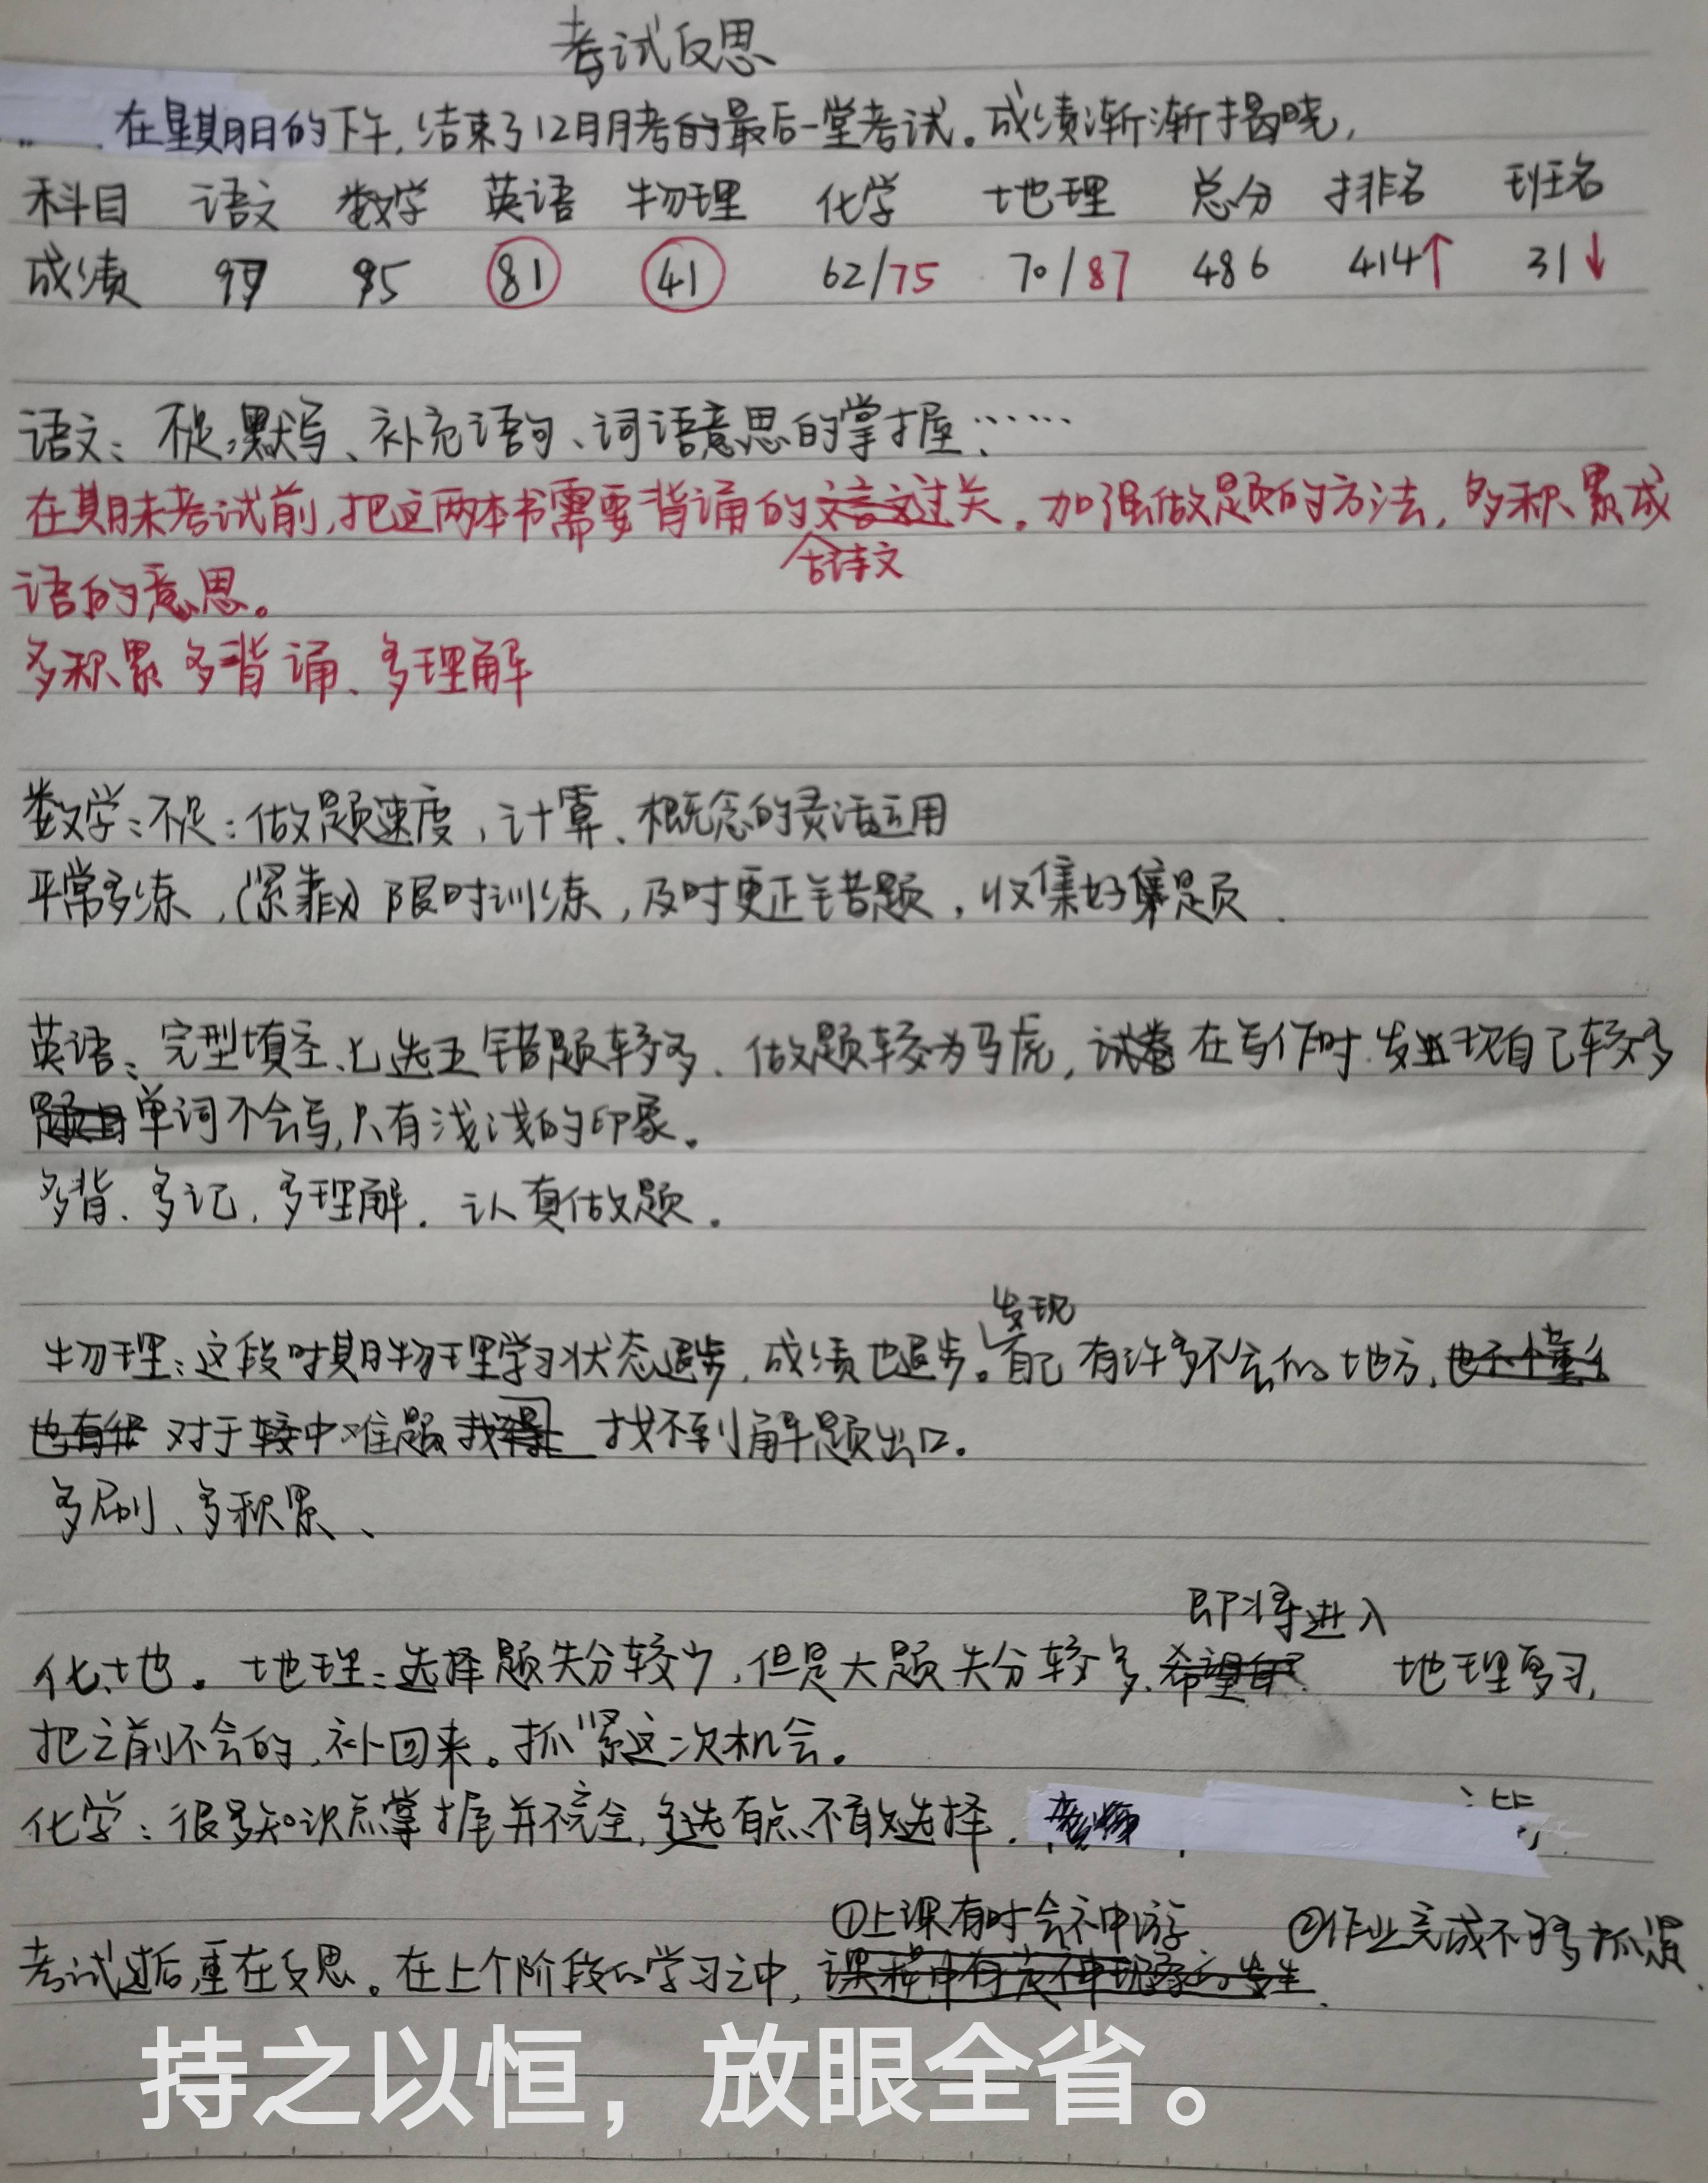 考试反思
在星期日的下午,结束了12月月考的最后一堂考试。成绩渐渐揭晓,
科目 语文 数学 英语 物理 化学 地理 总分 排名 班名
成绩 97 95 81 41 62/75 70/87 486 414↑ 31↓
语文:不足:默写、补充语句、词语意思的掌握……
在期末考试前,把这两本书需要背诵的文言文过关。加强做题的方法,多积累成
古诗文
语的意思。
多积累 多背诵、多理解
数学:不足:做题速度,计算、概念的灵活运用
平常多练,(紧靠)限时训练,及时更正错题,收集好集题.
英语:完型填空、七选五错题较多、做题较为马虎,试卷在写作时.发现自己较多
题目单词不会写,只有浅浅的印象。
多背、多记,多理解.认真做题.
发现
物理:这段时期物理学习状态退步,成绩也退步。自己有许多不会的地方,
也有 对于较中难题 找不到解题出口。
多刷、多积累、
即将进入
化、地。地理:选择题失分较少,但是大题失分较多.希望 地理复习,
把之前不会的,补回来。抓紧这次机会。
化学:很多知识点掌握并不完全,多选有点不敢选择.
①上课有时会神游 ②作业完成不够抓紧.
考试过后,重在反思。在上个阶段的学习之中,课程中有走神现象的发生.
持之以恒，放眼全省。